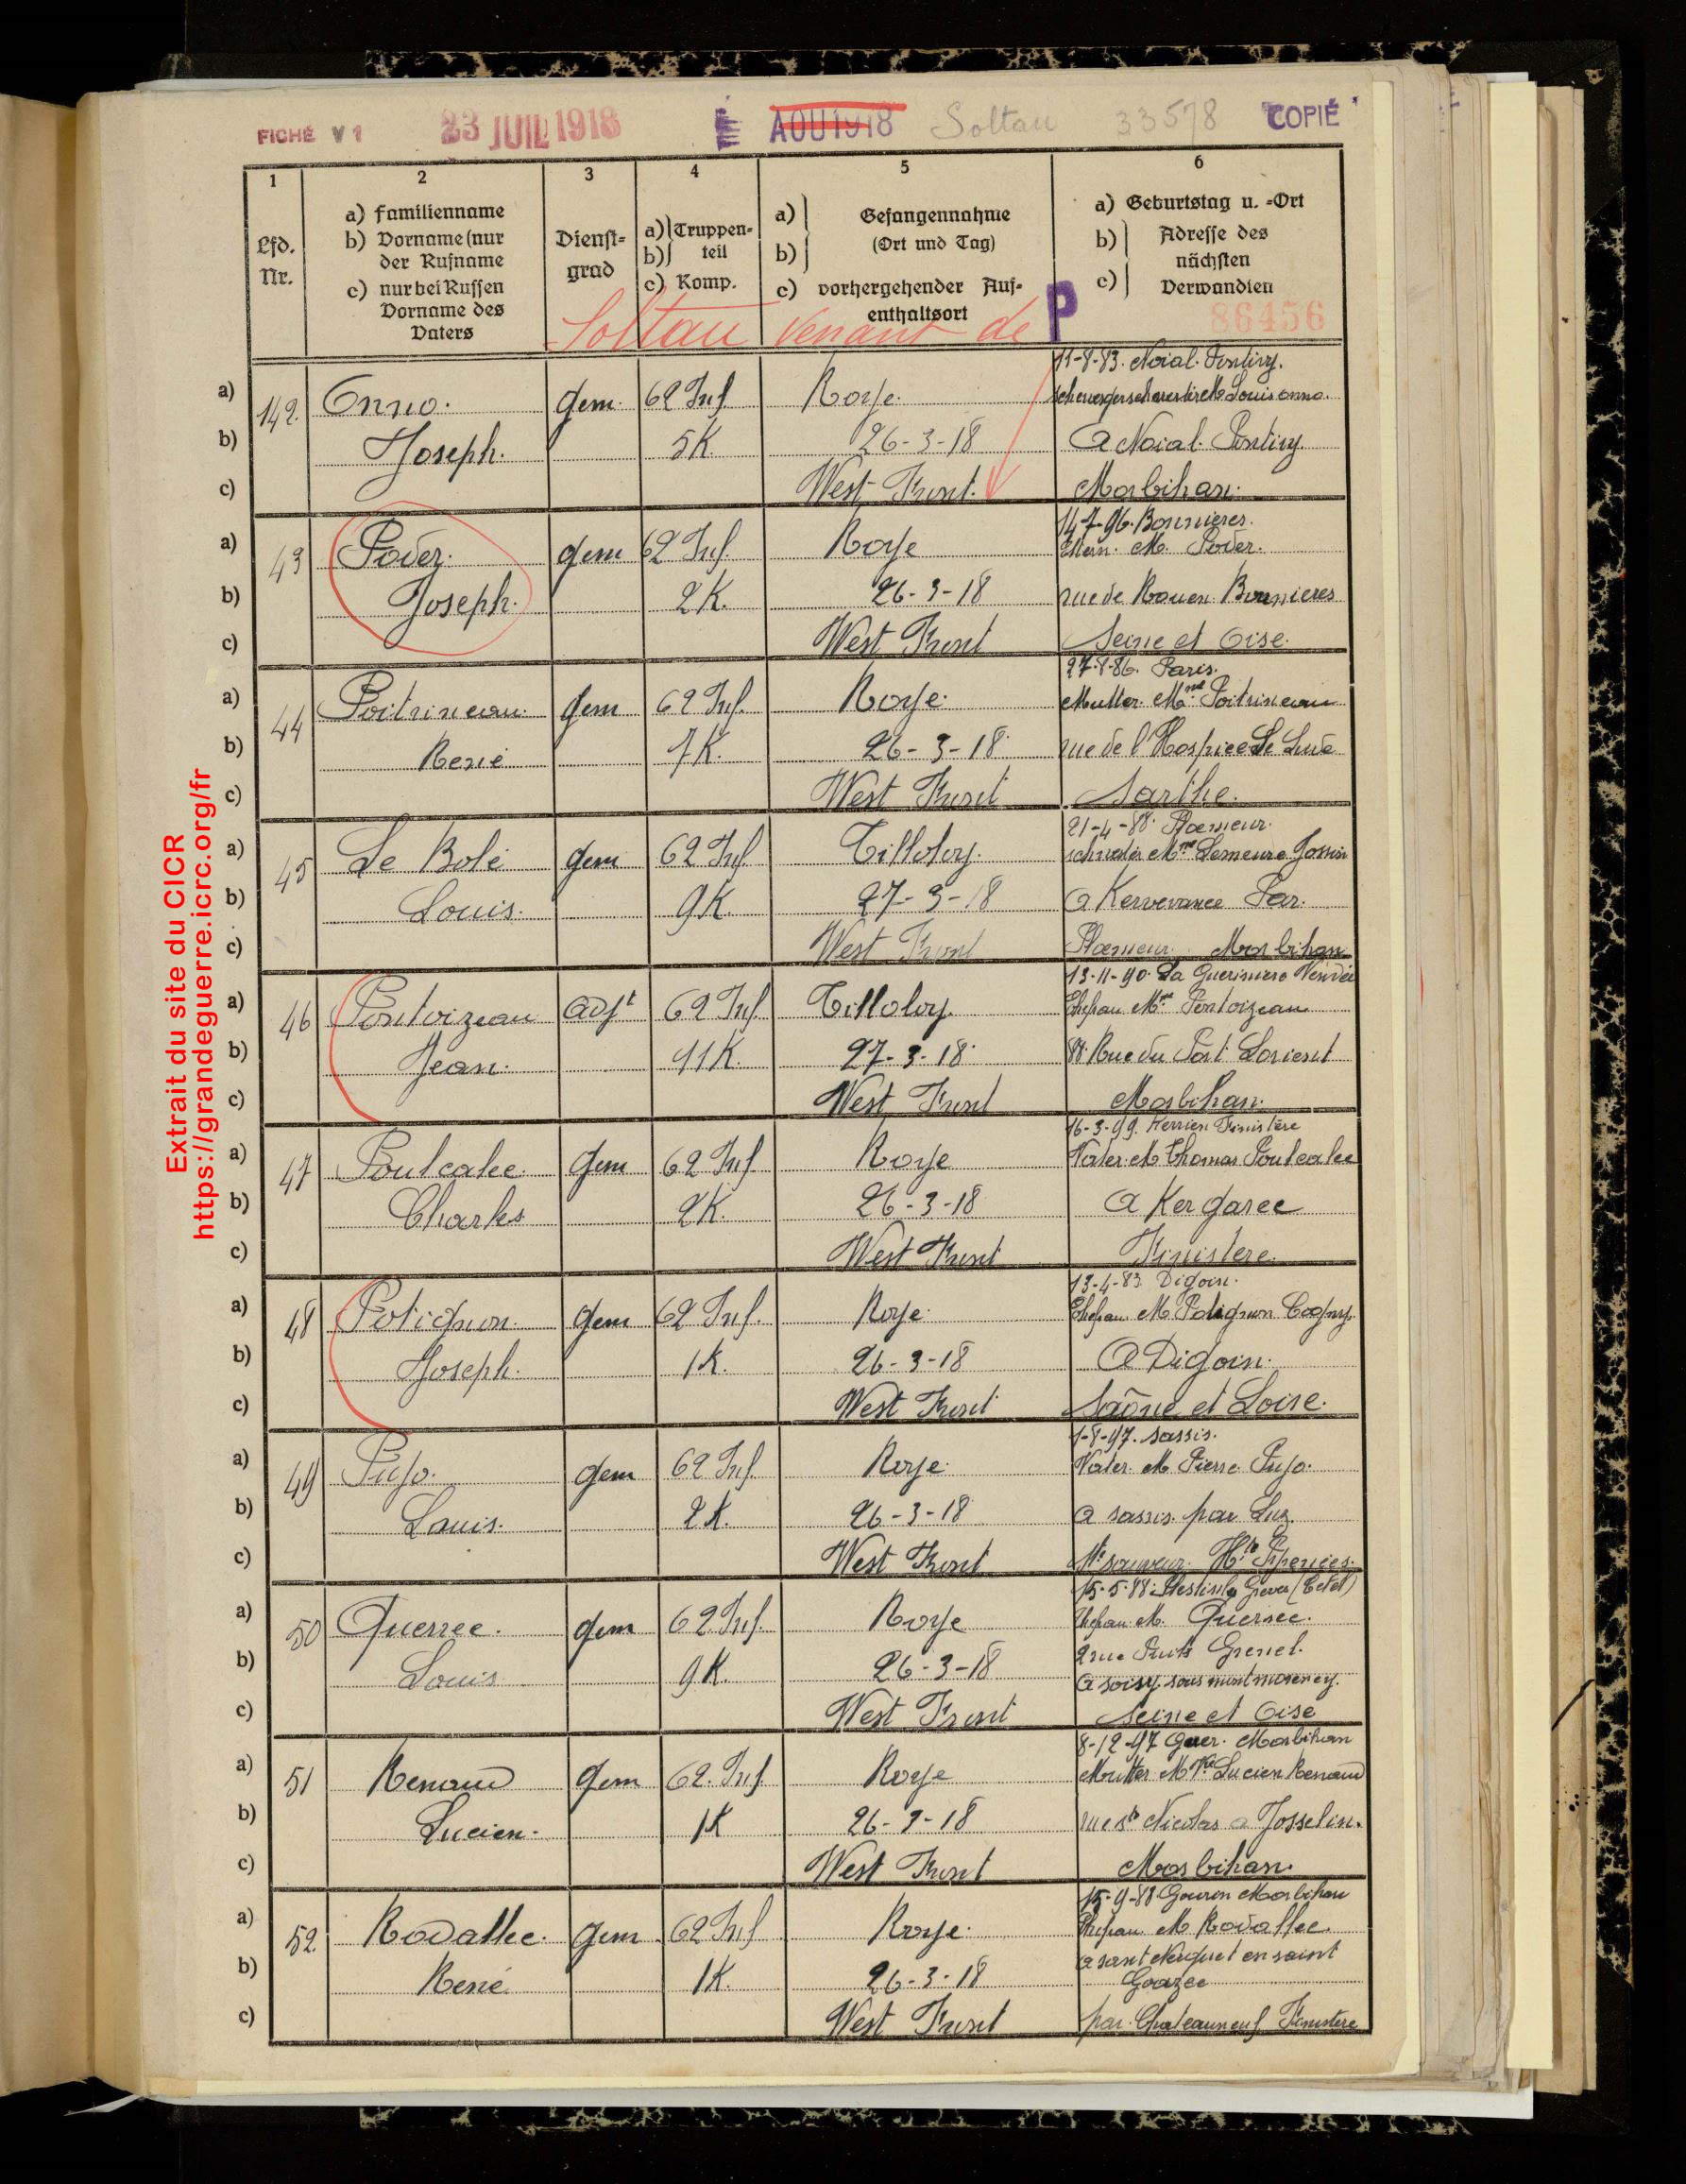 FICHÉ V 1
23 JUIL 1918
AOU 1918
Soltau
33578
COPIÉ
1
2
3
4
5
6
Lfd.
Nr.
a) Familienname
b) Vorname (nur
der Rufname
c) nur bei Russen
Vorname des
Vaters
Dienst-
grad
a) Truppen-
b) teil
c) Komp.
a) Gefangennahme
b) (Ort und Tag)
c) vorhergehender Auf-
enthaltsort
a) Geburtstag u. -Ort
b) Adresse des
nächsten
c) Verwandten
P
86456
Soltau venant de
142. Onno. gem. 62 Inf. Roye. 11-8-83. Noial. Pontivy.
Louis onno.
Joseph. 5K. 26-3-18 a Noial. Pontivy.
West Front. Morbihan.
43 Poder. gem 62 Inf. Roye 14-7-96. Bonnieres.
M. Poder.
Joseph. 2K. 26-3-18 rue de Rouen Bonnieres
West Front Seine et Oise.
44 Poitrineau. gem 62 Inf. Roye. 27-8-86. Paris.
Mutter. Mme Poitrineau
René 7K. 26-3-18 rue de l'Hospice Le Lude
West Front Sarthe.
45 Le Bolé gem 62 Inf. Tilloloy. 21-4-88. Ploemeur.
Mme
Louis. 9K. 27-3-18 a Kervevance Par.
West Front Ploemeur. Morbihan
46 Pontoizeau adjt 62 Inf. Tilloloy. 13-11-90. La Gueriniere Vendée
Ehefrau Mme Pontoizeau
Jean. 11K. 27-3-18 Rue du Port Lorient
West Front Morbihan.
47 Poulcalec gem 62 Inf. Roye 16-3-99. Kerrien Finistère
Vater. M Thomas Poulcalec
Charles 2K. 26-3-18 a Kergarec
West Front Finistere.
48 Potignon. gem 62 Inf. Roye. 13-4-83. Digoin.
Ehefrau M. Potignon Cogny.
Joseph. 1K. 26-3-18 a Digoin.
West Front Saône et Loire.
49 Pujo. gem 62 Inf. Roye. 1-8-97. sassis.
Vater. M Pierre Pujo.
Louis. 2K. 26-3-18 a sassis. par Luz.
West Front St sauveur. Hte Pyrenées.
50 Querrec. gem 62 Inf. Roye 15-5-88.
Ehefrau M. Querrec.
2 rue Puits Grenet.
Louis 9K. 26-3-18 a soisy. sous montmorency.
West Front Seine et Oise
51 Renaud gem 62. Inf. Roye 8-12-97 Guer. Morbihan
Mutter. M Lucien Renaud
Lucien. 1K 26-3-18 rue St Nicolas a Josselin.
West Front Morbihan.
52. Rodallec. gem 62 Inf. Roye. 15-9-88 Gourin Morbihan
Ehefrau M Rodallec.
en saint
René 1K. 26-3-18 Goazec
West Front par. Chateauneuf Finistere
a)
b)
c)
a)
b)
c)
a)
b)
c)
a)
b)
c)
a)
b)
c)
a)
b)
c)
a)
b)
c)
a)
b)
c)
a)
b)
c)
a)
b)
c)
a)
b)
c)
Extrait du site du CICR
https://grandeguerre.icrc.org/fr